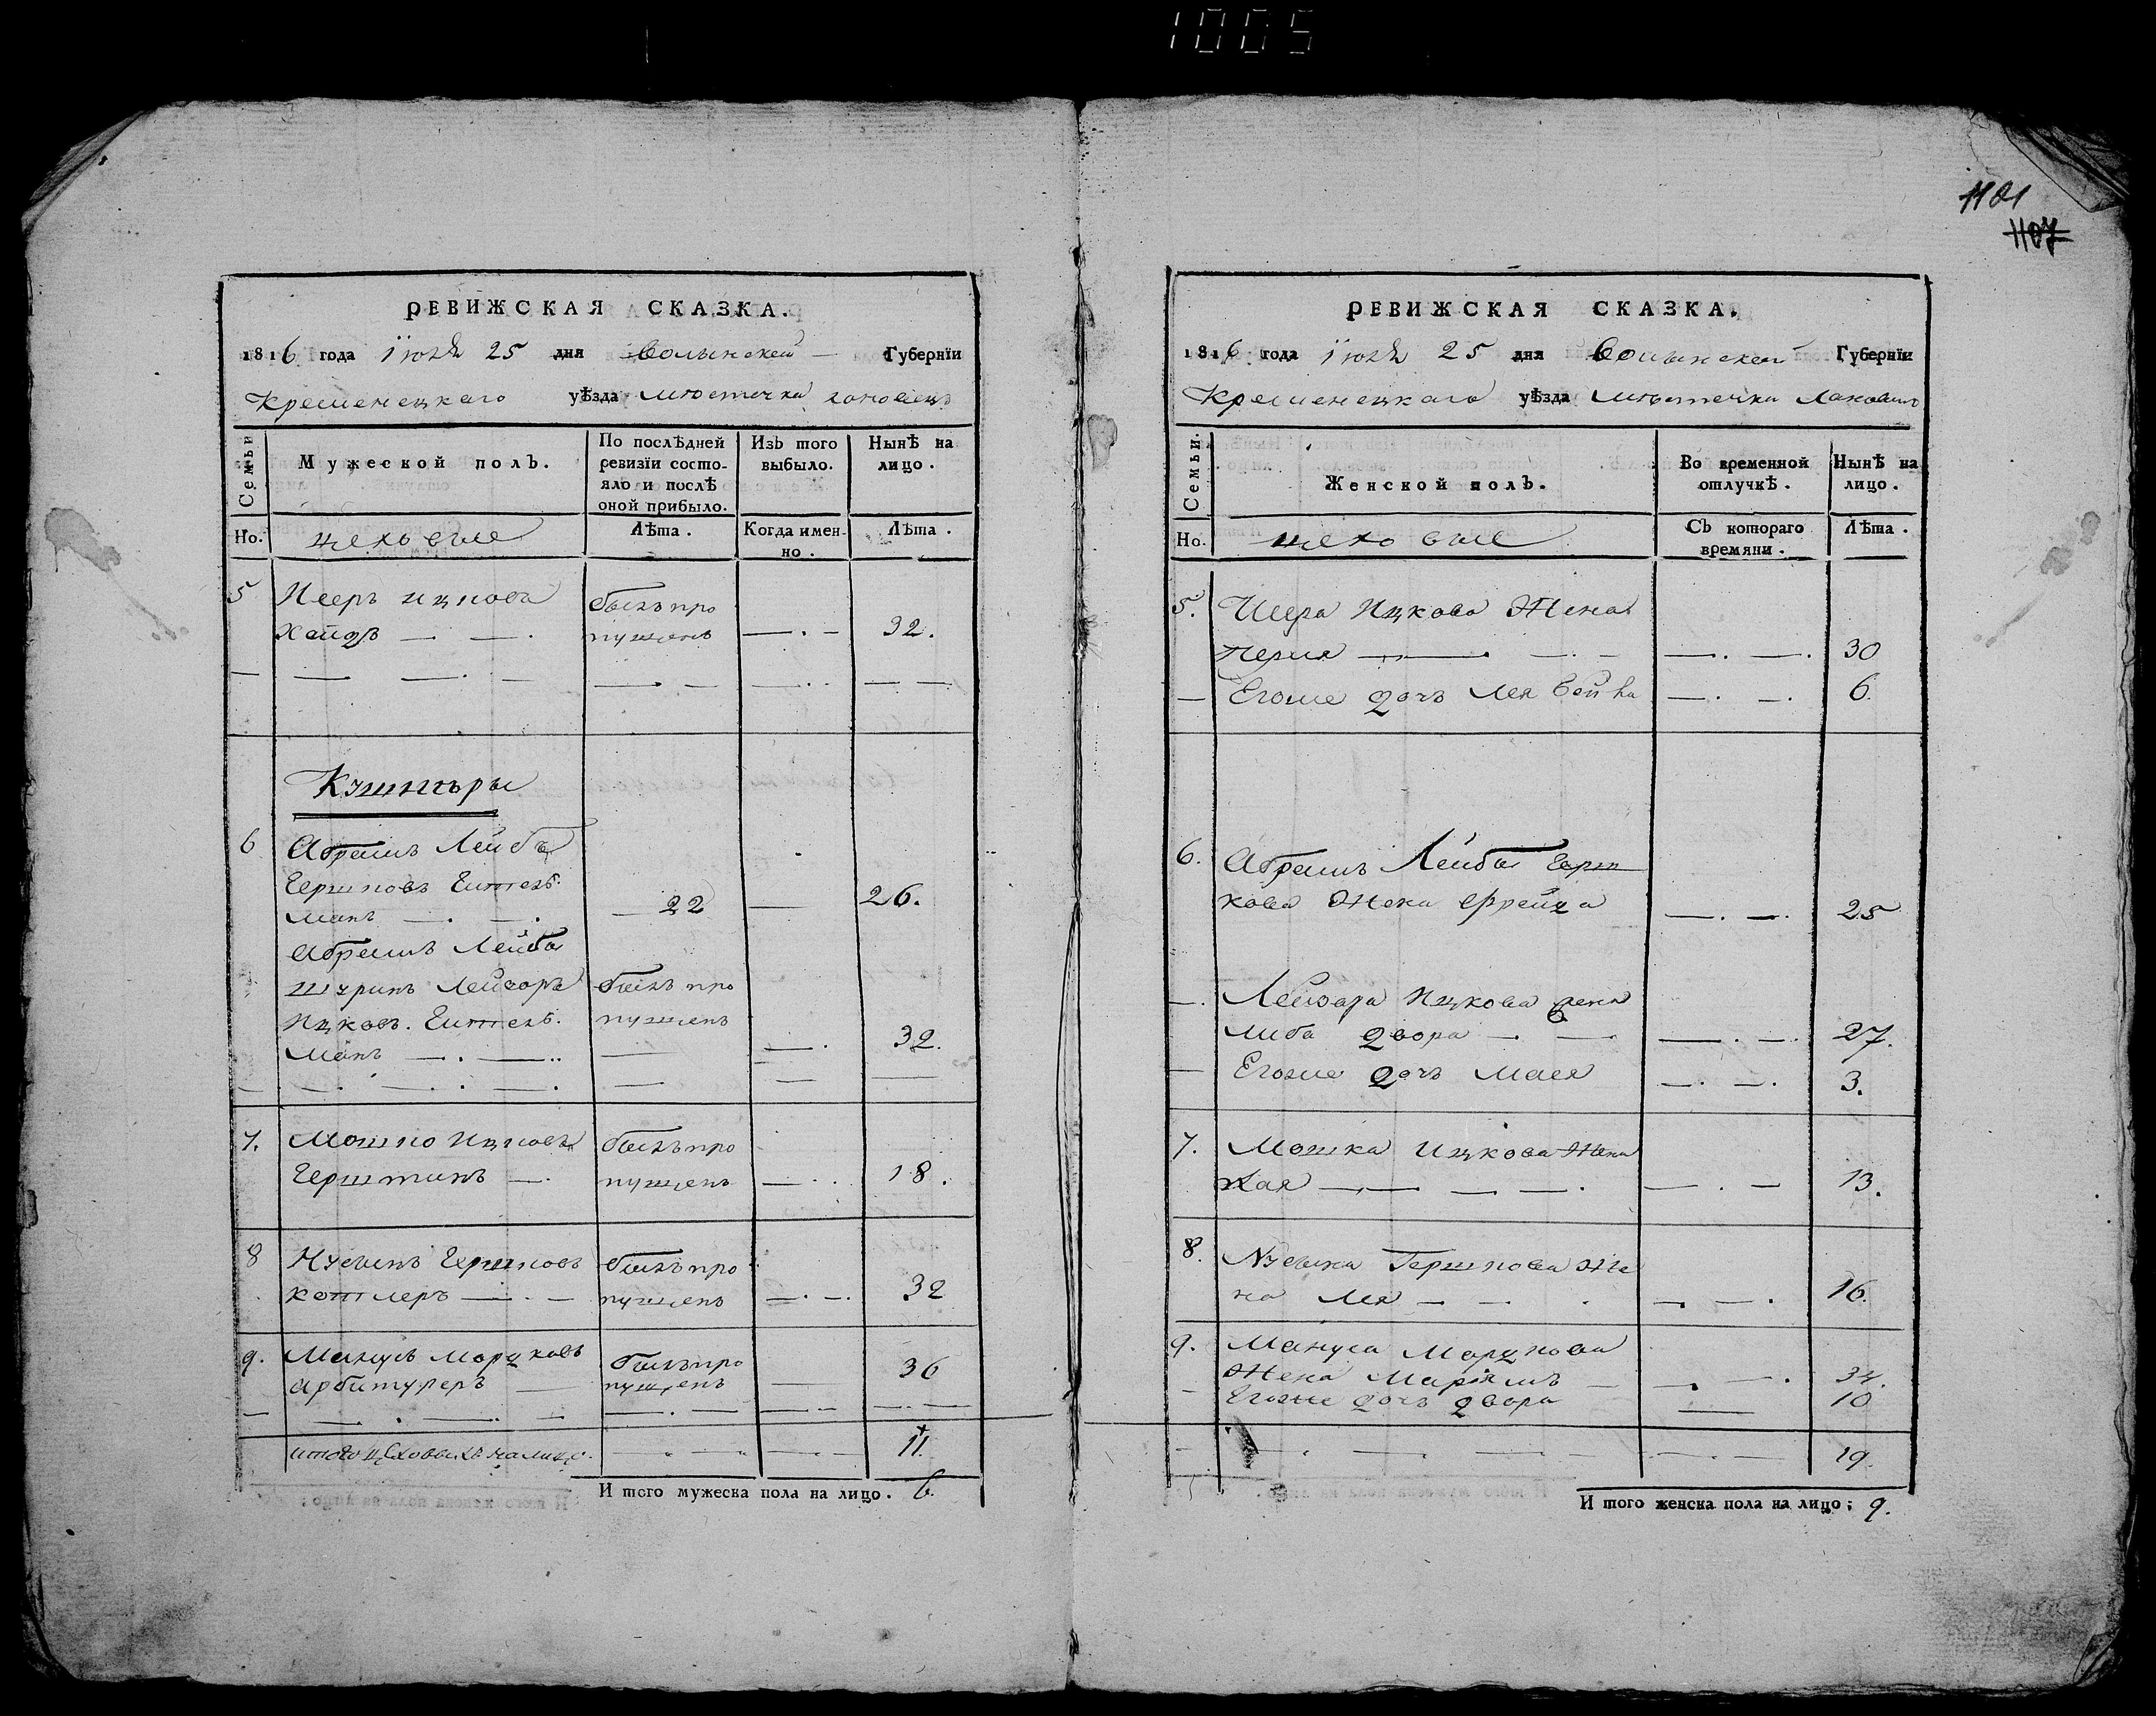 1005
1101
1107
РЕВИЖСКАЯ СКАЗКА.
1816 года Іюля 25 дня Волынской Губерніи
Кременецкаго уѣзда мѣстечка Лановецъ
Семьи
Мужеской полъ.
По послѣдней ревизіи состояло и послѣ оной прибыло.
Изъ того выбыло.
Нынѣ на лицо.
Но.
цеховые
Лѣта.
Когда именно.
Лѣта.
5 Исеръ Ицковъ былъ про
пущенъ 32.
Кушнѣры
6 Абрамъ Лейба
Гершковъ Гитель
манъ 22 26.
Абрамъ Лейба
шуринъ Лейзоръ былъ про
Ицковъ Гитель. пущенъ
манъ 32.
7. Мошко Ицковъ былъ про
Герштинъ пущенъ 18.
8 Нусынъ Гершковъ былъ про
котлеръ пущенъ 32
9. Манусъ Моршковъ былъ про
Арбитуреръ пущенъ 36
итого цеховыхъ на лицо. 11.
И того мужеска пола на лицо. 6.
РЕВИЖСКАЯ СКАЗКА.
1816 года Іюля 25 дня Волынской Губерніи
Кременецкаго уѣзда мѣстечка Лановецъ
Семьи.
Женской полъ.
Во временной отлучкѣ.
Нынѣ на лицо.
Но.
цеховые
Съ котораго времяни.
Лѣта.
5. Исера Ицкова Жена
Перля 30
Егоже дочь Лея 6.
6. Абрамъ Лейба Герш
кова Жена Фрейда 25
Лейзора Ицкова жена
Либа Двора 27.
Егоже дочь Малея 3.
7. Мошка Ицкова Жена
Хая 13.
8. Нусына Гершкова Же
на Лея 16.
9. Мануса
Жена Маріямъ 34.
Егоже дочь Двора 10
19.
И того женска пола на лицо; 9.